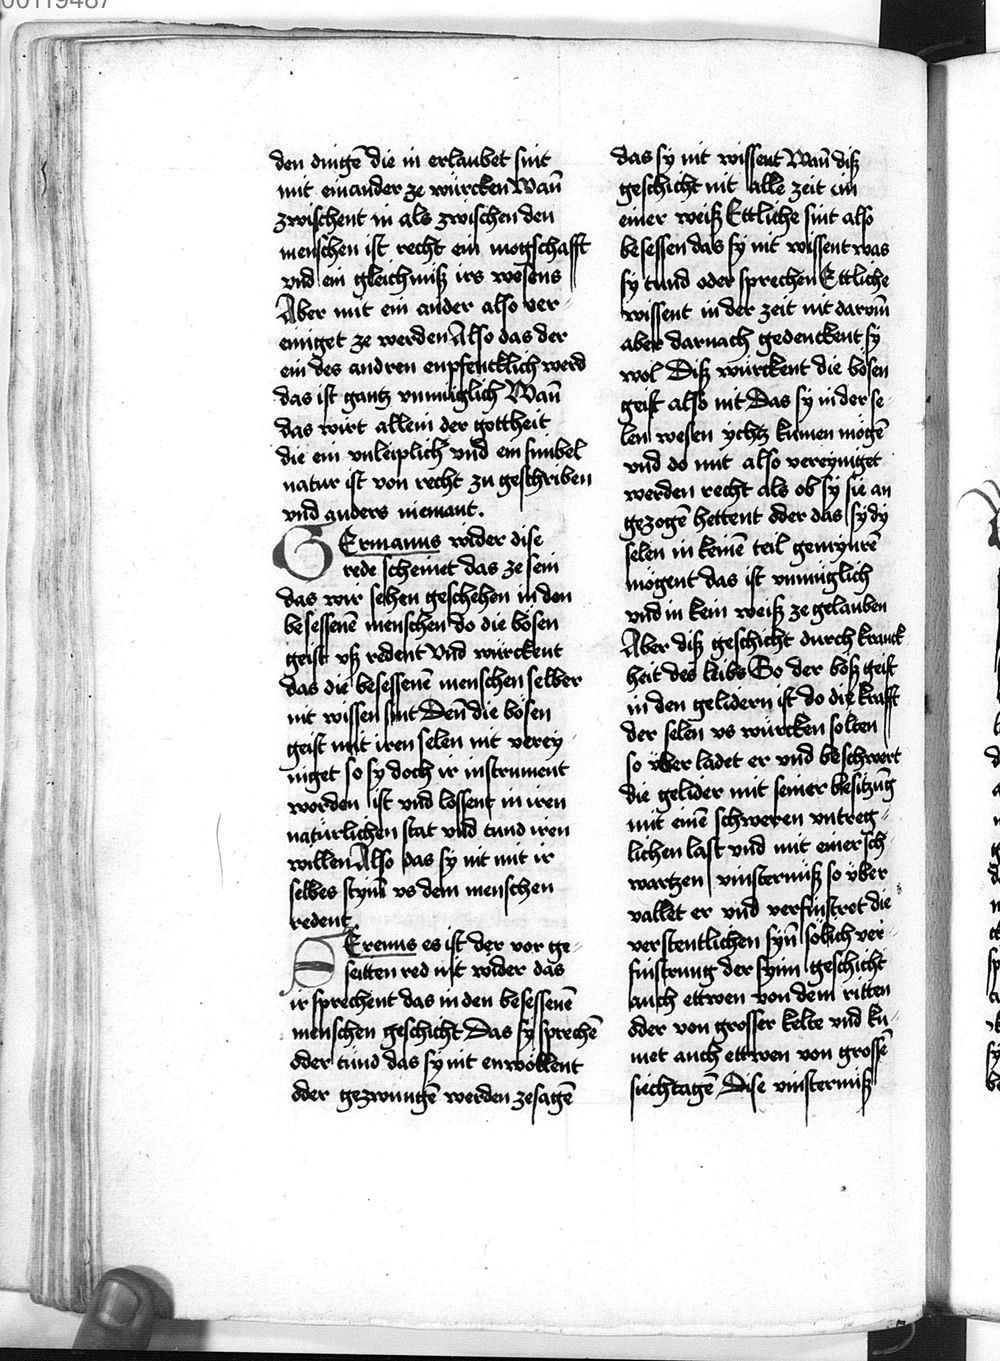 00119487
den dingē die in erlaubet sint
mit einander ze würcken Wañ
zwischent in als zwischen den
menschen ist recht ein mogschafft
vnd ein gleichnuß irs wesens
Aber mit ein ander also ver-
einiget ze werden Also das der
ein des andren enpfencklich werd
das ist gantz vnmüglich Wañ
das wirt allein der gottheit
die ein vnleiplich vnd ein simbel
natur ist von recht zu geschriben
vnd anders niemant.
GErmanus wider dise
rede scheinet das ze sein
das wir sehen geschehen in den
besessenē menschen do die bösen
geist vß redent vnd würckent
das die besessenē menschen selber
nit wissen sint Deñ die bösen
geist mit iren selen nit verey-
niget so sy doch ir instrument
worden ist vnd lossent in iren
natürlichen stat vnd tund iren
willen Also das sy nit mit ir
selbes stym vs dem menschen
redent
SErenus es ist der vor ge-
seitten red nit wider das
ir sprechent das in den besessenē
menschen geschicht Das sy sprechē
oder tund das sy nit enwöllent
oder gezwungē werden ze sagē
das sy nit wissent Wañ diß
geschicht nit alle zeit in
einer weiß Ettliche sint also
besessen das sy nit wissent was
sy tund oder sprechen Ettliche
wissent in der zeit nit darvm̄
aber darnach gedenckent sy
wol Diß würckent die bösen
geist also nit Das sy in der se-
len wesen ychtz kumen mögē
vnd do mit also vereyniget
werden recht als ob sy sie an
gezogē hettent oder das sy dy
selen in keinē teil gemynrē
mögent das ist vnmüglich
vnd in kein weiß ze gelauben
Aber diß geschicht durch kranck
heit des leibs So der böß geist
in den gelidern ist do die krafft
der selen vs würcken solten
so über ladet er vnd beschwert
die gelider mit seiner besitzūg
mit einē schweren vntreg-
lichen last vnd mit einer sch
wartzen vinsternuß so über
vallet er vnd verfinstret die
verstentlichen syñ sölich ver-
finstrung der synn geschicht
auch ettwen von dem ritten
oder von grosser kelte vnd ku-
met auch ettwen von grossē
siechtagē Dise vinsternuß